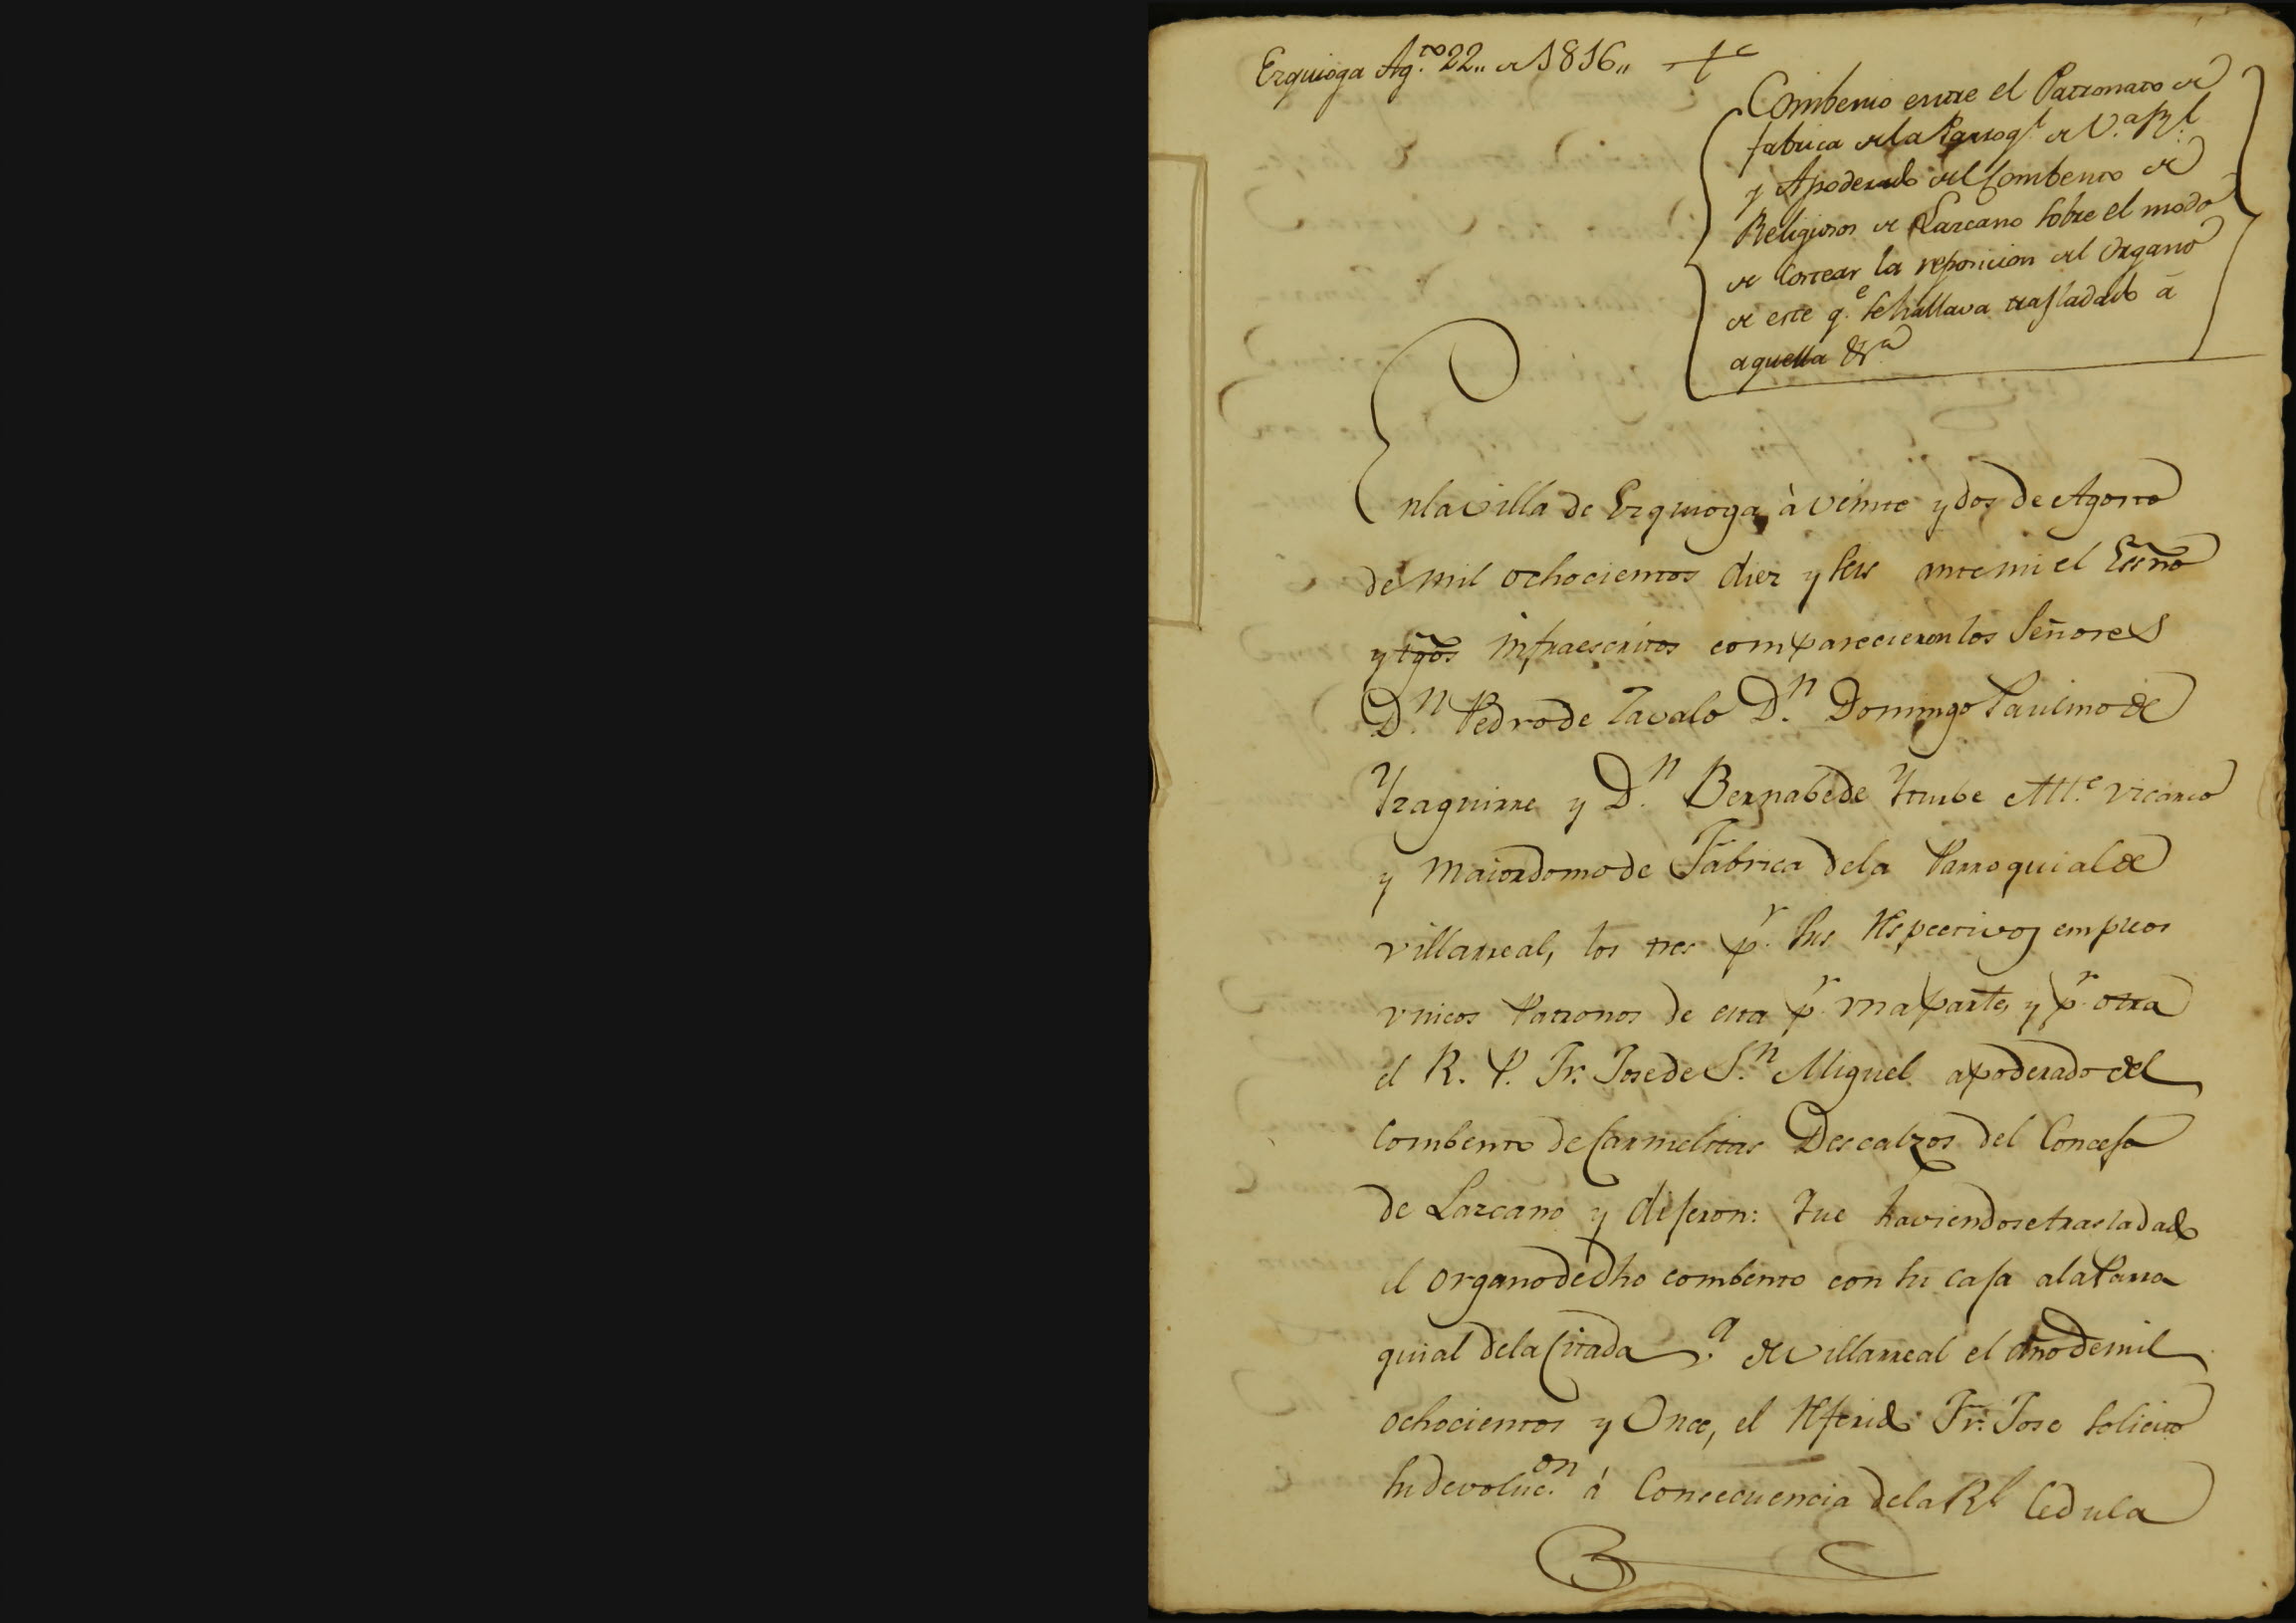 Ezquioga Ag.to 22,, de 1816,,
Combenio entre el Patronato de
fabrica de la Parroq.l de V.a R.l
y Apoderado del Combento de
Religiosos de Lazcano sobre el modo
de Costear la reposicion del Organo
de este q.e se hallava trasladado á
aquella &.a
En la villa de Ezquioga, à veinte y dos de Agosto
de mil ochocientos diez y seis ante mi el Essño
y tgos infraescritos comparecieron los Señores
D.n Pedro de Zavalo D.n Domingo Paulino de
Yzaguirre y D.n Bernabe de Yturbe All.e vicario
y Maiordomo de Fabrica de la Parroquial de
villarreal, los tres p.r sus respectivos empleos
vnicos Patronos de esta p.r vna parte, y p.r otra
el R. P. Fr. Jose de S.n Miguel apoderado del
Combento de Carmelitas Descalzos del Concejo
de Lazcano y dijeron: Que haviendose trasladado
el organo de dho combento con su caja a la Parro
quial de la Citada v.a de villarreal el año de mil
ochocientos y Once, el referido Fr. Jose solicito
su devoluc.on á Consecuencia de la Rl Cedula